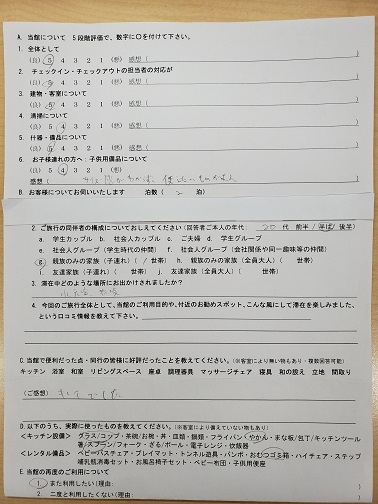 A. 当館について 5段階評価で、数字に○を付けて下さい。
1. 全体として
(良) 5 4 3 2 1 (悪) 感想(
2. チェックイン・チェックアウトの担当者の対応が
(良) 5 4 3 2 1 (悪) 感想(
3. 建物・客室について
(良) 5 4 3 2 1 (悪) 感想(
4. 清掃について
(良) 5 4 3 2 1 (悪) 感想(
5. 什器・備品について
(良) 5 4 3 2 1 (悪) 感想(
6. お子様連れの方へ:子供用備品について
(良) 5 4 3 2 1 (悪)
感想(
B. お客様についてお伺いいたします 泊数( 2 泊)
2. ご旅行の同伴者の構成についておしえてください(回答者ご本人の年代: 20 代 前半 / 半ば / 後半)
a. 学生カップル b. 社会人カップル c. ご夫婦 d. 学生グループ
e. 社会人グループ(学生時代の仲間) f. 社会人グループ(会社関係や同一趣味等の仲間)
g 親族のみの家族(子連れ)( / 世帯) h. 親族のみの家族(全員大人)( 世帯)
i. 友達家族(子連れ)( 世帯) j. 友達家族(全員大人)( 世帯)
3. 滞在中どのような場所にお出かけされましたか?
4. 今回のご旅行全体として、当館のご利用目的や、付近のお勧めスポット、こんな風にして滞在を楽しみました、
という口コミ情報を教えて下さい。
C. 当館で便利だった点・同行の皆様に好評だったことを教えてください。(※客室により無い物もあり・複数回答可能)
キッチン 浴室 和室 リビングスペース 座卓 調理器具 マッサージチェア 寝具 和の設え 立地 間取り
(ご感想)
D. 以下のうち、実際に使ったものを教えてください。(※客室により備えていない物もあり)
<キッチン設備> グラス/コップ・茶碗/お椀・丼・皿類・鍋類・フライパン・やかん・まな板・包丁/キッチンツール
箸/スプーン/フォーク・ざる/ボール・電子レンジ・炊飯器
<レンタル備品> ベビーバスチェア・プレイマット・トンネル遊具・バンボ・おむつゴミ箱・ハイチェア・ステップ
哺乳瓶消毒セット・お風呂椅子セット・ベビー布団・子供用便座
E. 当館の再度のご利用について
1. また利用したい(理由:
2. 二度と利用したくない(理由: